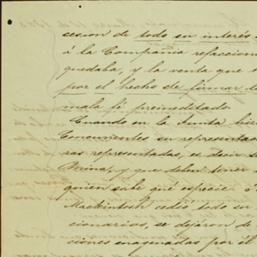 cesion de todo su interés
á la Compañía refaccion
quedaba, y la venta que
por el hecho de firmar
mala fé premeditado.
Cuando en la Junta
Concurrentes en representa
ras representadas, es decir
Mina, y que deben tener
quien sabe qué especie
Mackintosh cedió todo su
cionarios, se dejaron de
ciones enagenadas por él